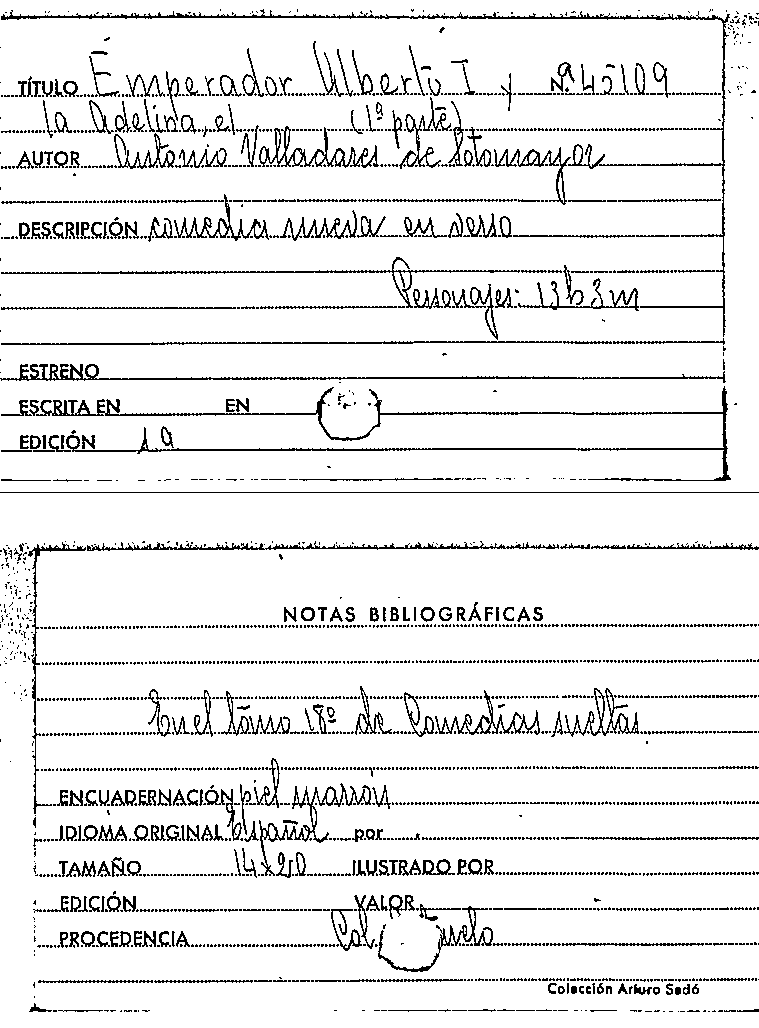 TÍTULO Emperador Alberto I y Nº 45109
la Adelina, el (1ª parte)
AUTOR Antonio Valladares de Sotomayor
DESCRIPCIÓN comedia nueva en verso
Personajes: 13h3m
ESTRENO
ESCRITA EN EN
EDICIÓN 1a
NOTAS BIBLIOGRÁFICAS
En el tomo 18º de Comedias sueltas
ENCUADERNACIÓN piel marrón
IDIOMA ORIGINAL Español por
TAMAÑO 14x20 ILUSTRADO POR
EDICIÓN VALOR
PROCEDENCIA Col.
Colección Arturo Sedó